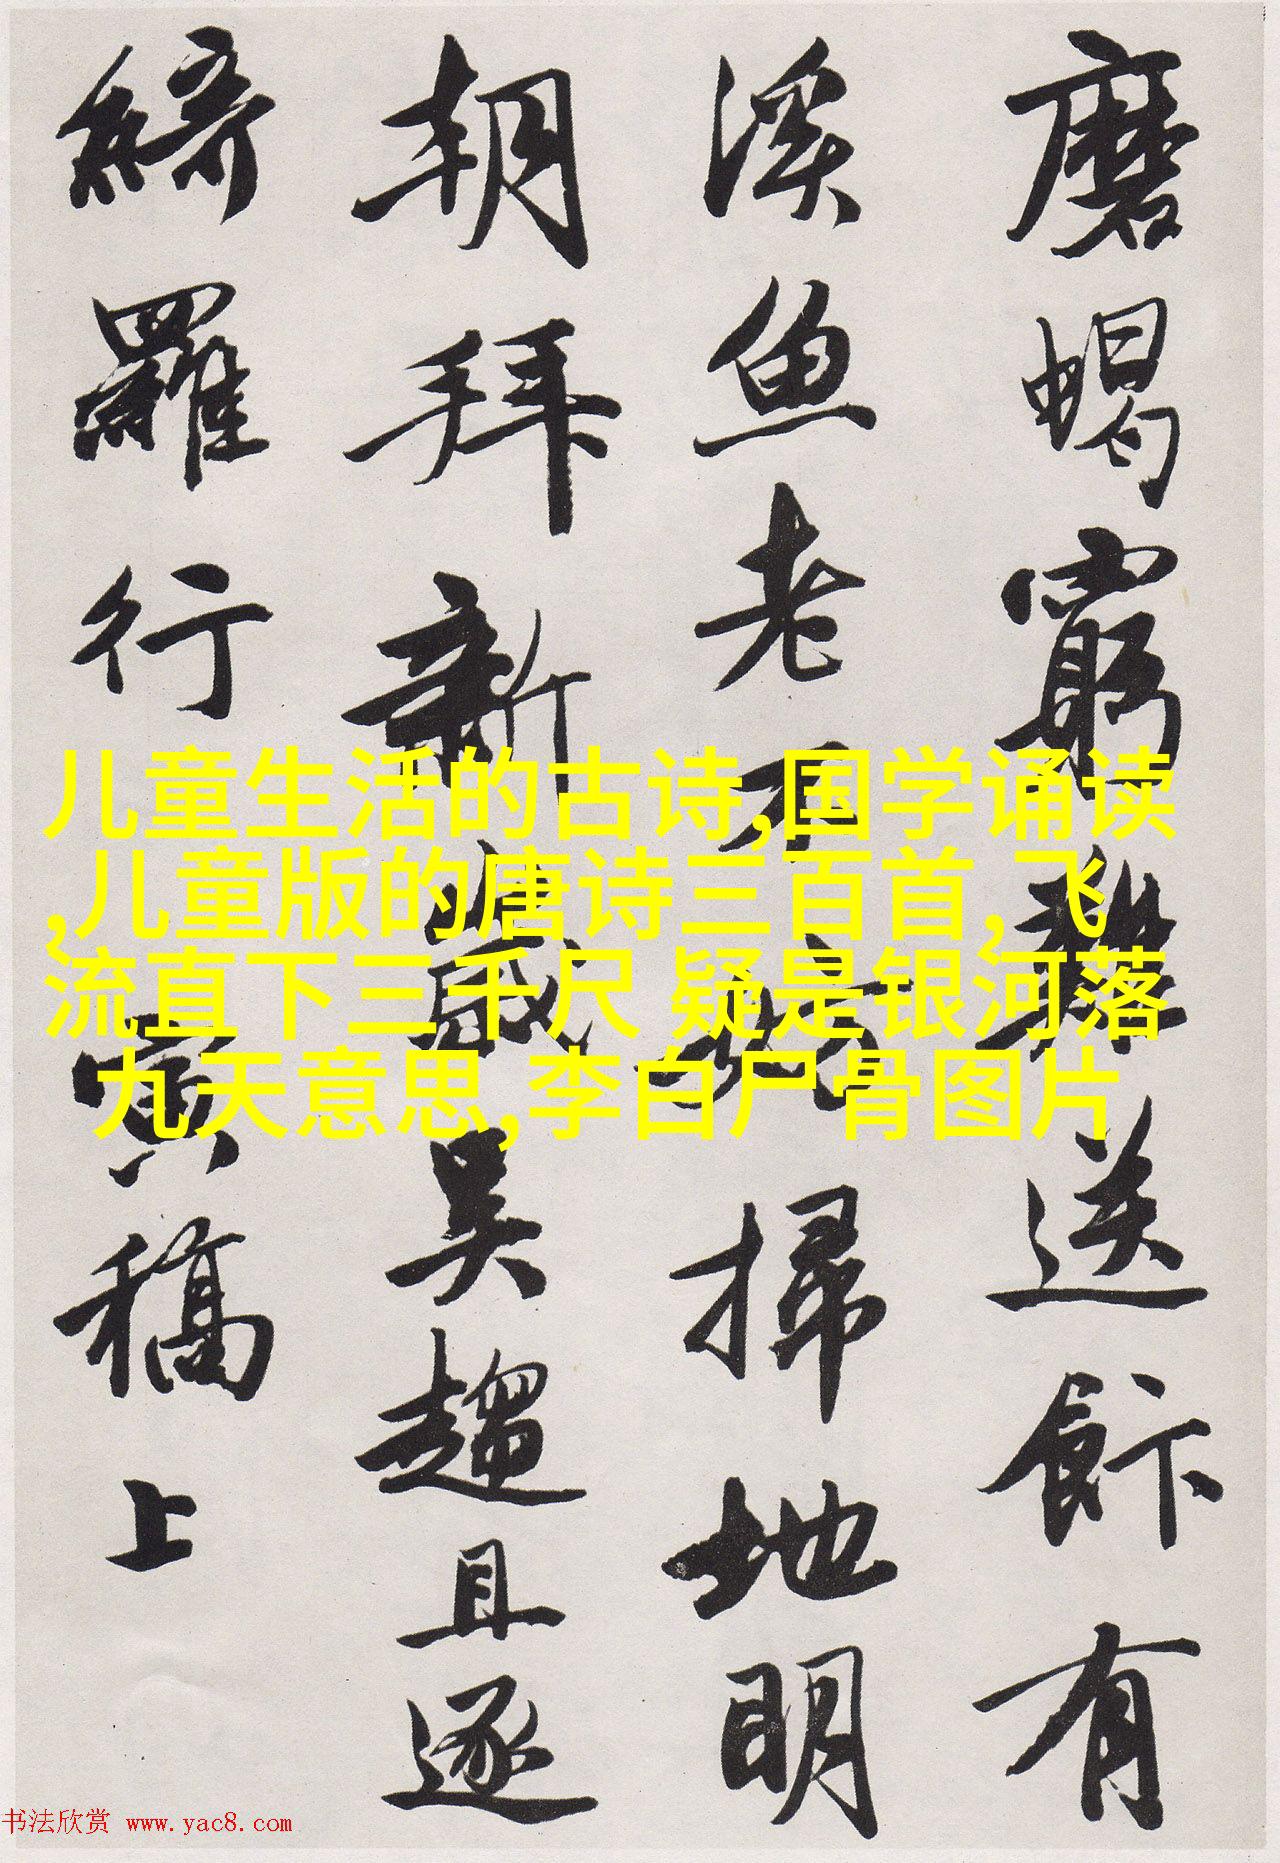 磨蝎窮難送飰有
溪魚老不妨掃地明
朝拜新歲吳趨且逐
綺羅行 寅稿上
儿童生活的古诗,国学诵读
,儿童版的唐诗三百首, 飞
流直下三千尺 疑是银河落
九天意思,李白尸骨图片
书法欣赏 www.yac8.com